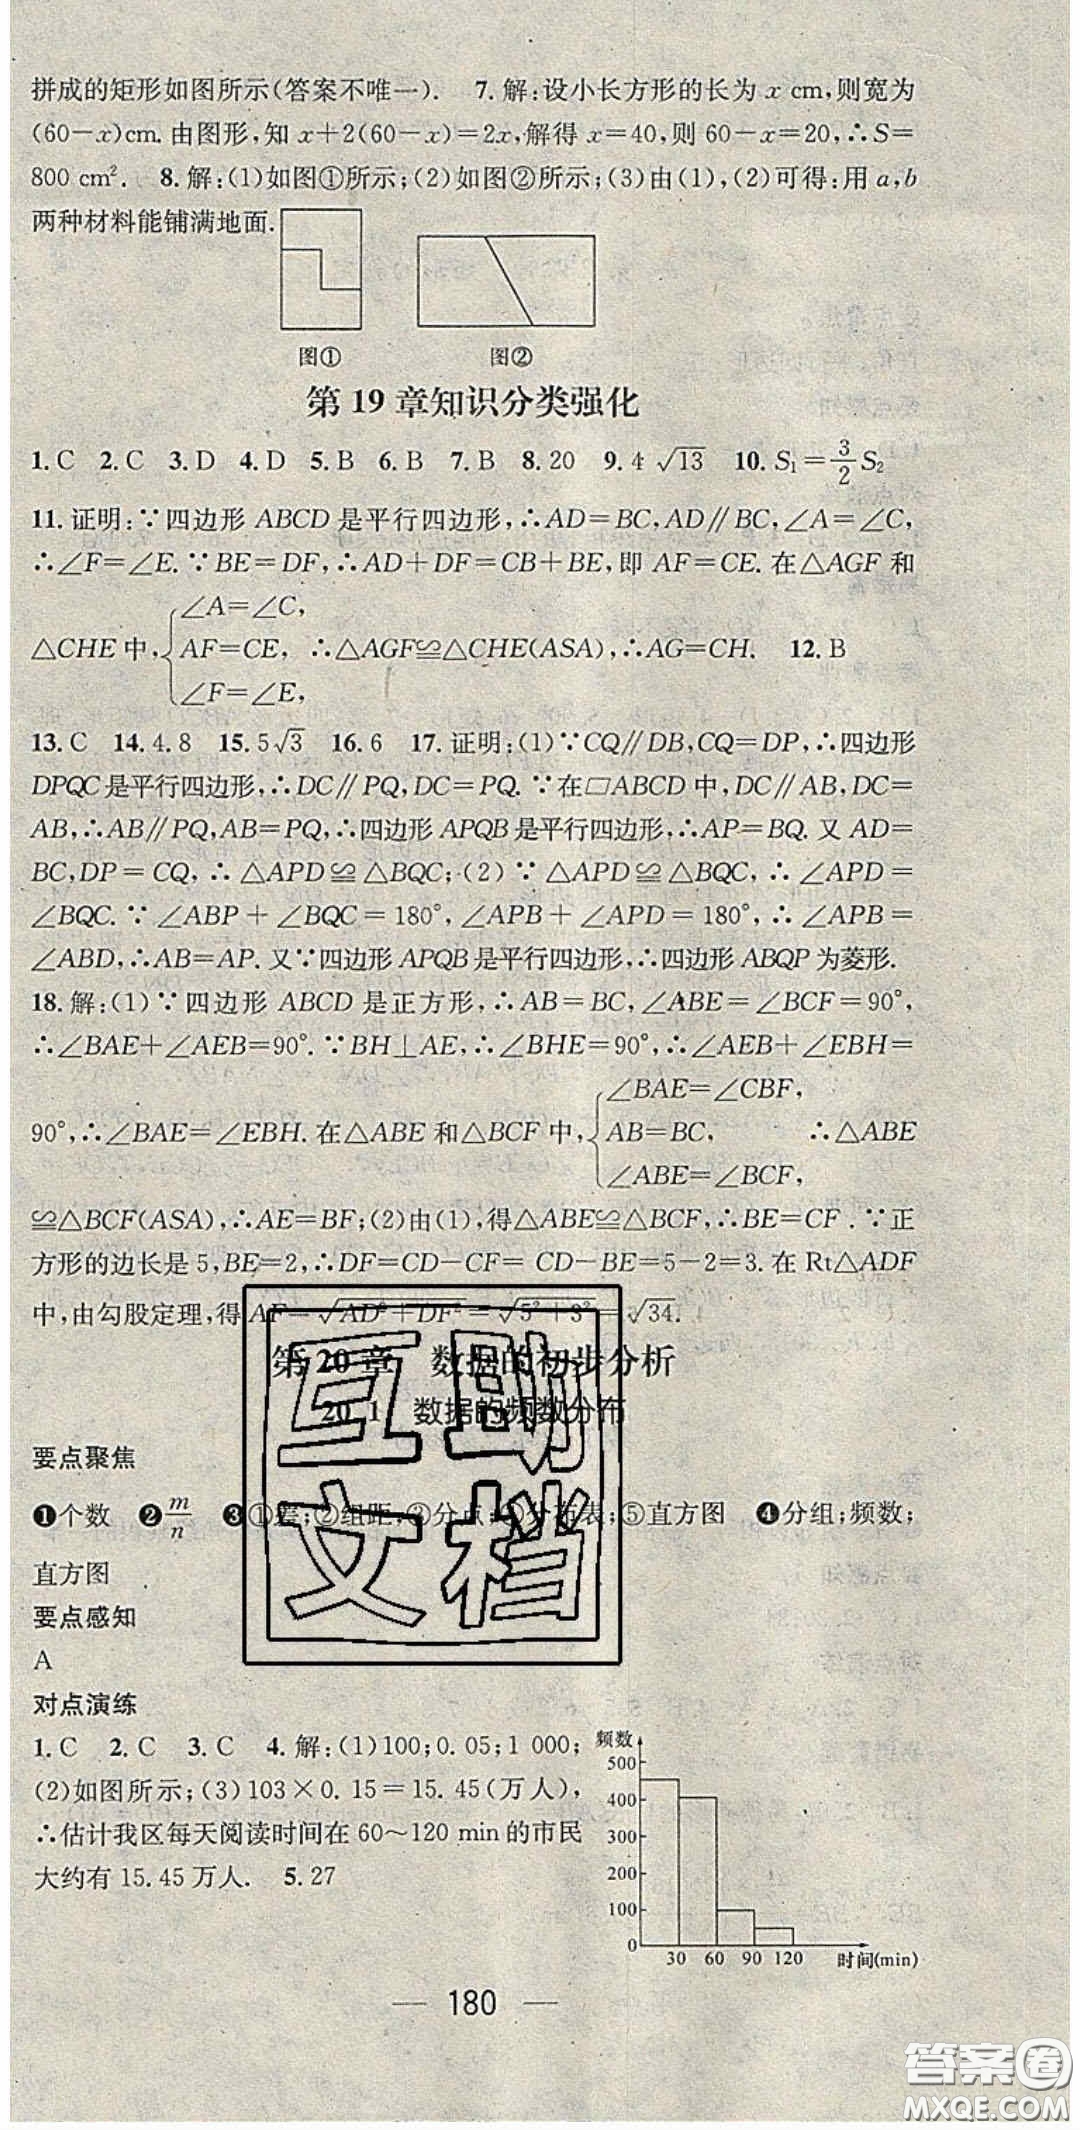 拼成的矩形如图所示(答案不唯一).  7.解:设小长方形的长为 x cm,则宽为
(60-x)cm.由图形,知 x+2(60-x)=2x,解得 x=40,则 60-x=20,∴S=
800 cm².  8.解:(1)如图①所示;(2)如图②所示;(3)由(1),(2)可得:用 a,b
两种材料能铺满地面.
图①  图②
第 19 章知识分类强化
1.C  2.C  3.D  4.D  5.B  6.B  7.B  8.20  9.4 √13  10.S₁=3/2 S₂
11.证明:∵四边形 ABCD 是平行四边形,∴AD=BC,AD∥BC,∠A=∠C,
∴∠F=∠E.∵BE=DF,∴AD+DF=CB+BE,即 AF=CE.在△AGF 和
∠A=∠C,
△CHE 中,{AF=CE, ∴△AGF≌△CHE(ASA),∴AG=CH.  12.B
∠F=∠E,
13.C  14.4.8  15.5√3  16.6  17.证明:(1)∵CQ∥DB,CQ=DP,∴四边形
DPQC是平行四边形,∴DC∥PQ,DC=PQ.∵在▱ABCD 中,DC∥AB,DC=
AB,∴AB∥PQ,AB=PQ,∴四边形 APQB是平行四边形,∴AP=BQ.又 AD=
BC,DP=CQ,∴△APD≌△BQC;(2)∵△APD≌△BQC,∴∠APD=
∠BQC.∵∠ABP+∠BQC=180°,∠APB+∠APD=180°,∴∠APB=
∠ABD,∴AB=AP.又∵四边形 APQB是平行四边形,∴四边形 ABQP 为菱形.
18.解:(1)∵四边形 ABCD 是正方形,∴AB=BC,∠ABE=∠BCF=90°,
∴∠BAE+∠AEB=90°.∵BH⊥AE,∴∠BHE=90°,∴∠AEB+∠EBH=
∠BAE=∠CBF,
90°,∴∠BAE=∠EBH.在△ABE 和△BCF 中,{AB=BC,  ∴△ABE
∠ABE=∠BCF,
≌△BCF(ASA),∴AE=BF;(2)由(1),得△ABE≌△BCF,∴BE=CF.∵正
方形的边长是 5,BE=2,∴DF=CD-CF=CD-BE=5-2=3.在 Rt△ADF
中,由勾股定理,得 AF=√AD²+DF²=√5²+3²=√34.
第 20 章  数据的初步分析
20.1  数据的频数分布
要点聚焦
❶个数  ❷m/n  ❸①差;②组距;③分点;④分布表;⑤直方图  ❹分组;频数;
直方图
要点感知
A
对点演练
1.C  2.C  3.C  4.解:(1)100;0.05;1 000;
(2)如图所示;(3)103×0.15=15.45(万人),
∴估计我区每天阅读时间在 60~120 min 的市民
大约有 15.45 万人.  5.27
频数
500
400
300
200
100
0
30 60 90 120 时间(min)
— 180 —
互助
文档
答案圈
MXQE.COM